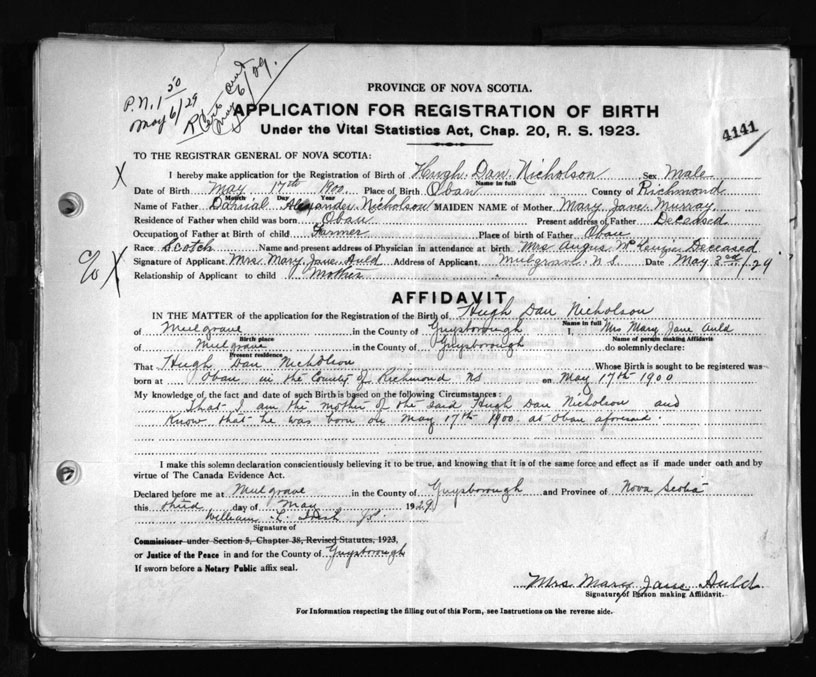 P.N. 1 50
May 6/29
May 6/29
PROVINCE OF NOVA SCOTIA.
APPLICATION FOR REGISTRATION OF BIRTH
Under the Vital Statistics Act, Chap. 20, R. S. 1923.
4141
TO THE REGISTRAR GENERAL OF NOVA SCOTIA:
X I hereby make application for the Registration of Birth of Hugh Dan Nicholson Sex Male
Name in full
Date of Birth May 17th 1900 Place of Birth Oban County of Richmond
Month Day Year
Name of Father Danial Alexander Nicholson MAIDEN NAME of Mother Mary Jane Murray
Residence of Father when child was born Oban Present address of Father Deceased
Occupation of Father at Birth of child Farmer Place of birth of Father Oban
Race Scotch Name and present address of Physician in attendance at birth Mrs Angus McKenzie Deceased
X Signature of Applicant Mrs. Mary Jane Auld Address of Applicant Mulgrave N S Date May 3rd/29
Relationship of Applicant to child Mother
AFFIDAVIT
IN THE MATTER of the application for the Registration of the Birth of Hugh Dan Nicholson
Name in full
of Mulgrave in the County of Guysborough I, Mrs Mary Jane Auld
Birth place Name of person making Affidavit
of Mulgrave in the County of Guysborough do solemnly declare:
Present residence
That Hugh Dan Nicholson Whose Birth is sought to be registered was
born at Oban in the County of Richmond NS on May 17th 1900
My knowledge of the fact and date of such Birth is based on the following Circumstances:
That I am the mother of the said Hugh Dan Nicholson and
Know that he was born on May 17th 1900 at Oban aforesaid.
I make this solemn declaration conscientiously believing it to be true, and knowing that it is of the same force and effect as if made under oath and by
virtue of The Canada Evidence Act.
Declared before me at Mulgrave in the County of Guysborough and Province of Nova Scotia
this third day of May 1929
William
Signature of
Commissioner under Section 5, Chapter 38, Revised Statutes, 1923,
or Justice of the Peace in and for the County of Guysborough
If sworn before a Notary Public affix seal.
Mrs. Mary Jane Auld.
Signature of Person making Affidavit.
For Information respecting the filling out of this Form, see Instructions on the reverse side.